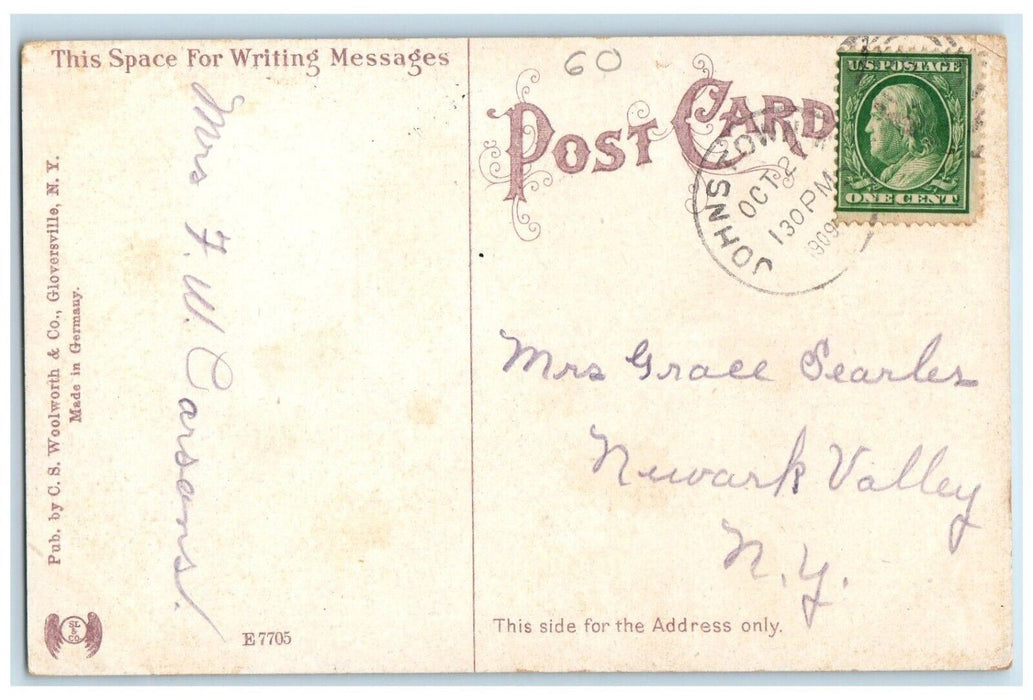 This Space For Writing Messages
Mrs F. W. Carsons.
Pub. by C. S. Woolworth & Co., Gloversville, N. Y.
Made in Germany.
SL & CO
E 7705
60
POST CARD
JOHNSTOWN
OCT 2
130 PM
1909
U.S. POSTAGE
ONE CENT
Mrs Grace Searles
Newark Valley
N.Y.
This side for the Address only.